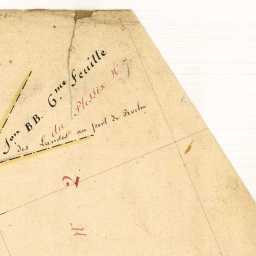 Son BB. 6.me Feuille
du Plessix
des Landes au port de Roche
N° 2